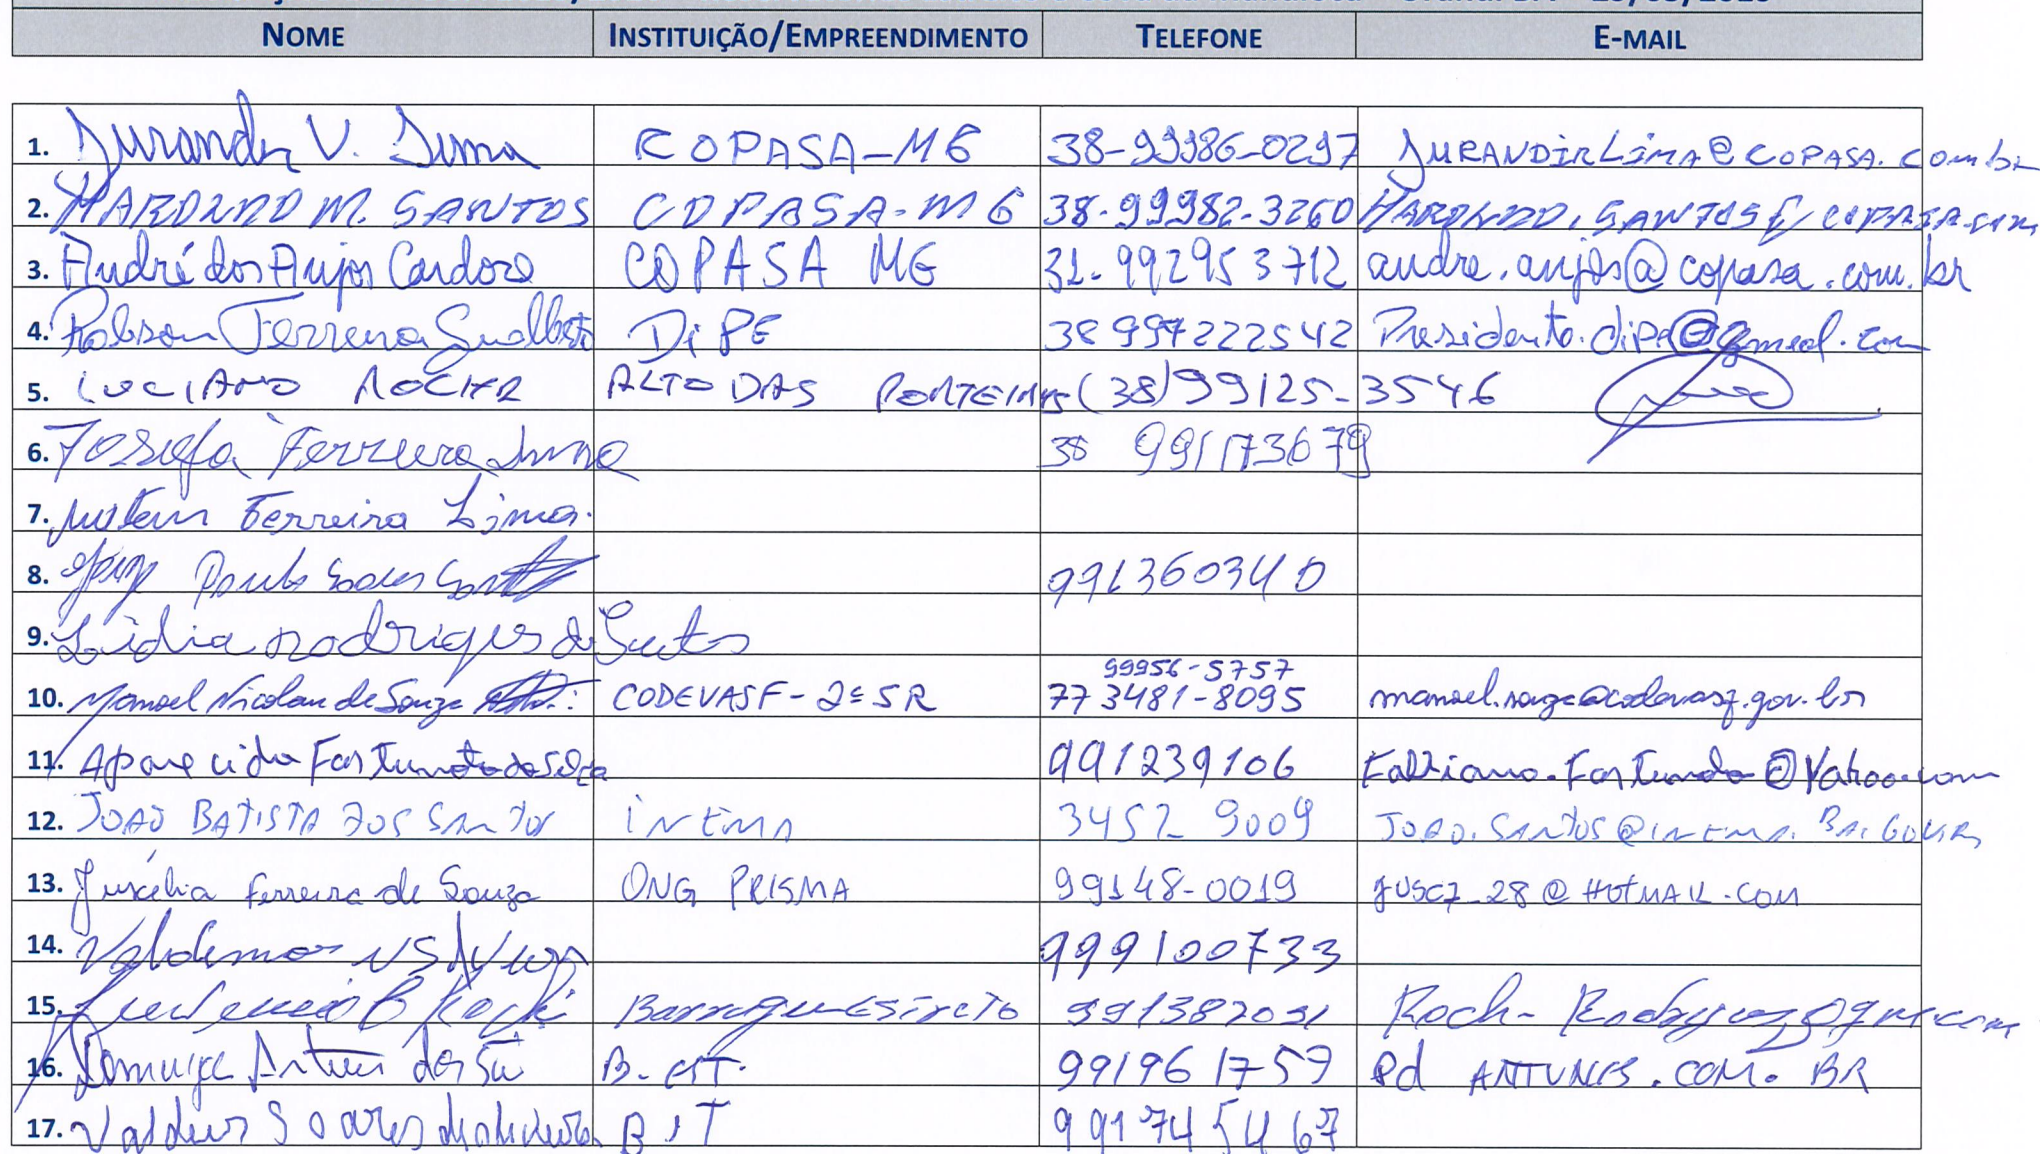 NOME INSTITUIÇÃO/EMPREENDIMENTO TELEFONE E-MAIL
1. Jurandir V. Lima COPASA-MG 38-99986-0297 JURANDIR LIMA@COPASA.COM.br
2. HAROLDO M. SANTOS COPASA-MG 38-99982-3260 HAROLDO.SANTOS@COPASA.com
3. André dos Anjos Cardoso COPASA MG 31-992953712 andre.anjos@copasa.com.br
4. Robson Ferreira Gualberto DiPE 38 997222542 Presidente.dipe@gmail.com
5. LUCIANO ROCHA ALTO DAS PORTEIRAS (38) 99125-3546
6. Josefa Ferreira Lima 38 991173679
7. Ferreira Lima.
8. Paulo 991360340
9. Lidia Rodrigues do Santos
99956-5757
10. Manoel Nicolau de Souza CODEVASF - 2ª SR 77 3481-8095 manoel.souza@codevasf.gov.br
11. Aparecida Fortunato da Silva 991239106
12. JOAO BATISTA DOS SANTOS INEMA 3452 9009 JOAO.SANTOS@INEMA.BA.GOV.BR
13. Juscélia Ferreira de Souza ONG PRISMA 99148-0019 JUSC7_28@HOTMAIL.COM
14. Valdemar 999100733
15. 991382091
16. Antunes 991961759 ed ANTUNES.COM.BR
17. Soares de Oliveira B.I.T 991745467